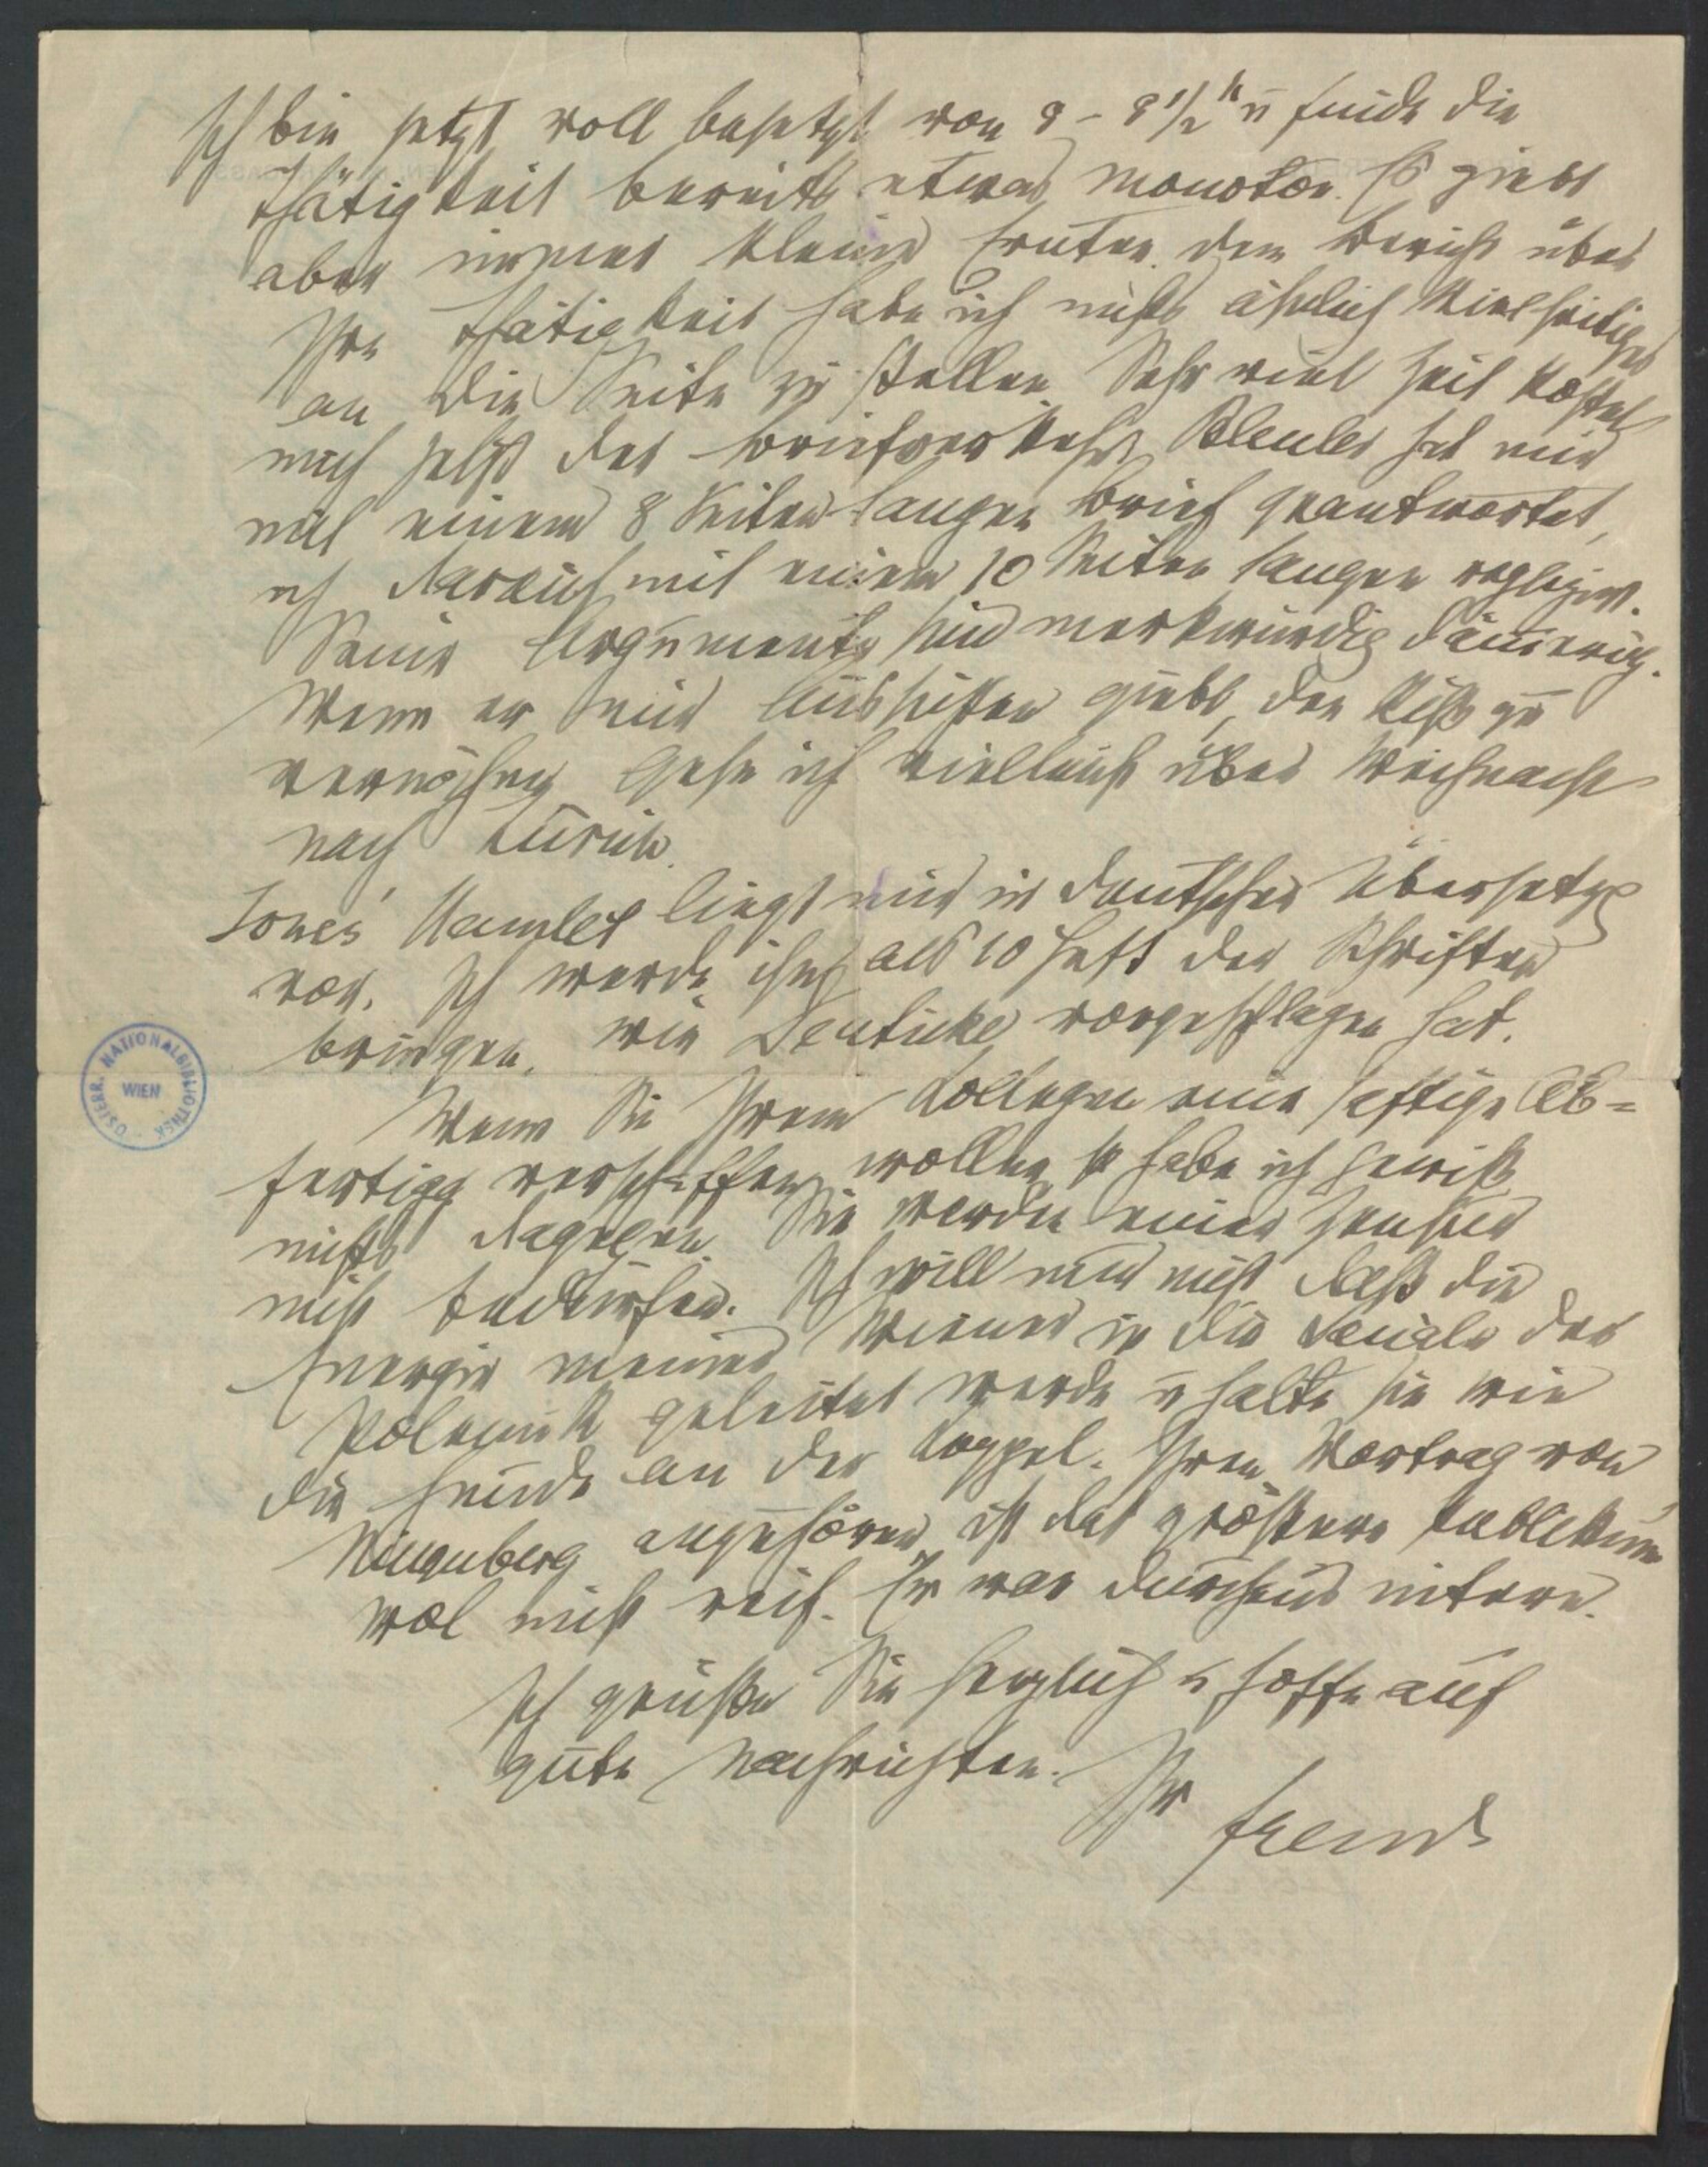 Ich bin jetzt voll besetzt von 9 – 8 1/2 h u finde die
Thätigkeit bereits etwas monoton. Es giebt
aber immer kleine Ernten. Dem Bericht über
Ihre Thätigkeit habe ich nichts ähnlich Vielseitiges
an die Seite zu stellen. Sehr viel Zeit kostet
mich jetzt der Briefverkehr. Bleuler hat mir
mit einem 8 Seiten langen Brief geantwortet,
ich darauf mit einem 10 Seiten langen replizirt.
Seine Argumente sind merkwürdig
Wenn er mir Aussichten giebt, den Riß zu
gehe ich vielleicht über Weihnacht
nach Zürich.
Jones' Hamlet liegt mir in deutscher Übersetzg
vor. Ich werde ihn als 10 Heft der Schriften
bringen, wie Deuticke vorgeschlagen hat.
Wenn Sie Ihrem Kollegen eine heftige Ab=
fertigg verschaffen wollen, so habe ich gewiß
nichts dagegen. Sie werden einer Zensur
nicht bedürfen. Ich will nur nicht daß die
Energie meiner Wiener in die Kanäle der
Polemik geleitet werde u halte sie wie
die Hunde an der Koppel. Ihren Vortrag von
Nürnberg anzuhören ist das größere Publikum
wol nicht reif. Er war durchaus intern.
Ich grüße Sie herzlich u hoffe auf
gute Nachrichten.
Ihr
Freud
ÖSTERR. NATIONALBIBLIOTHEK
WIEN